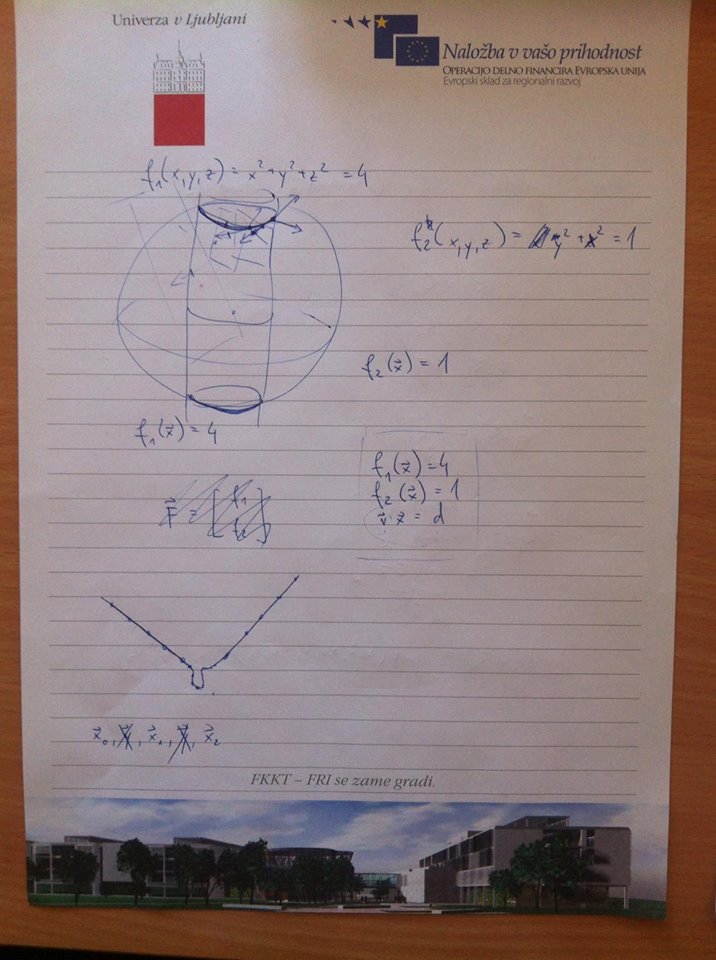 Univerza v Ljubljani
Naložba v vašo prihodnost
OPERACIJO DELNO FINANCIRA EVROPSKA UNIJA
Evropski sklad za regionalni razvoj
f₁(x,y,z) = x² + y² + z² = 4
f₂(x,y,z) = y² + x² = 1
f₂(x⃗) = 1
f₁(x⃗) = 4
f₁(x⃗) = 4
f₂(x⃗) = 1
v⃗·x⃗ = d
F⃗ = [f₁ f₂]
x⃗₀, x⃗₁, x⃗₂
FKKT – FRI se zame gradi.